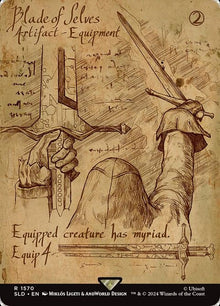 Blade of Selves
2
Artifact - Equipment
Equipped creature has myriad.
Equip 4
R 1570
SLD • EN Miklós Ligeti & AndWorld Design
© Ubisoft
™ & © 2024 Wizards of the Coast